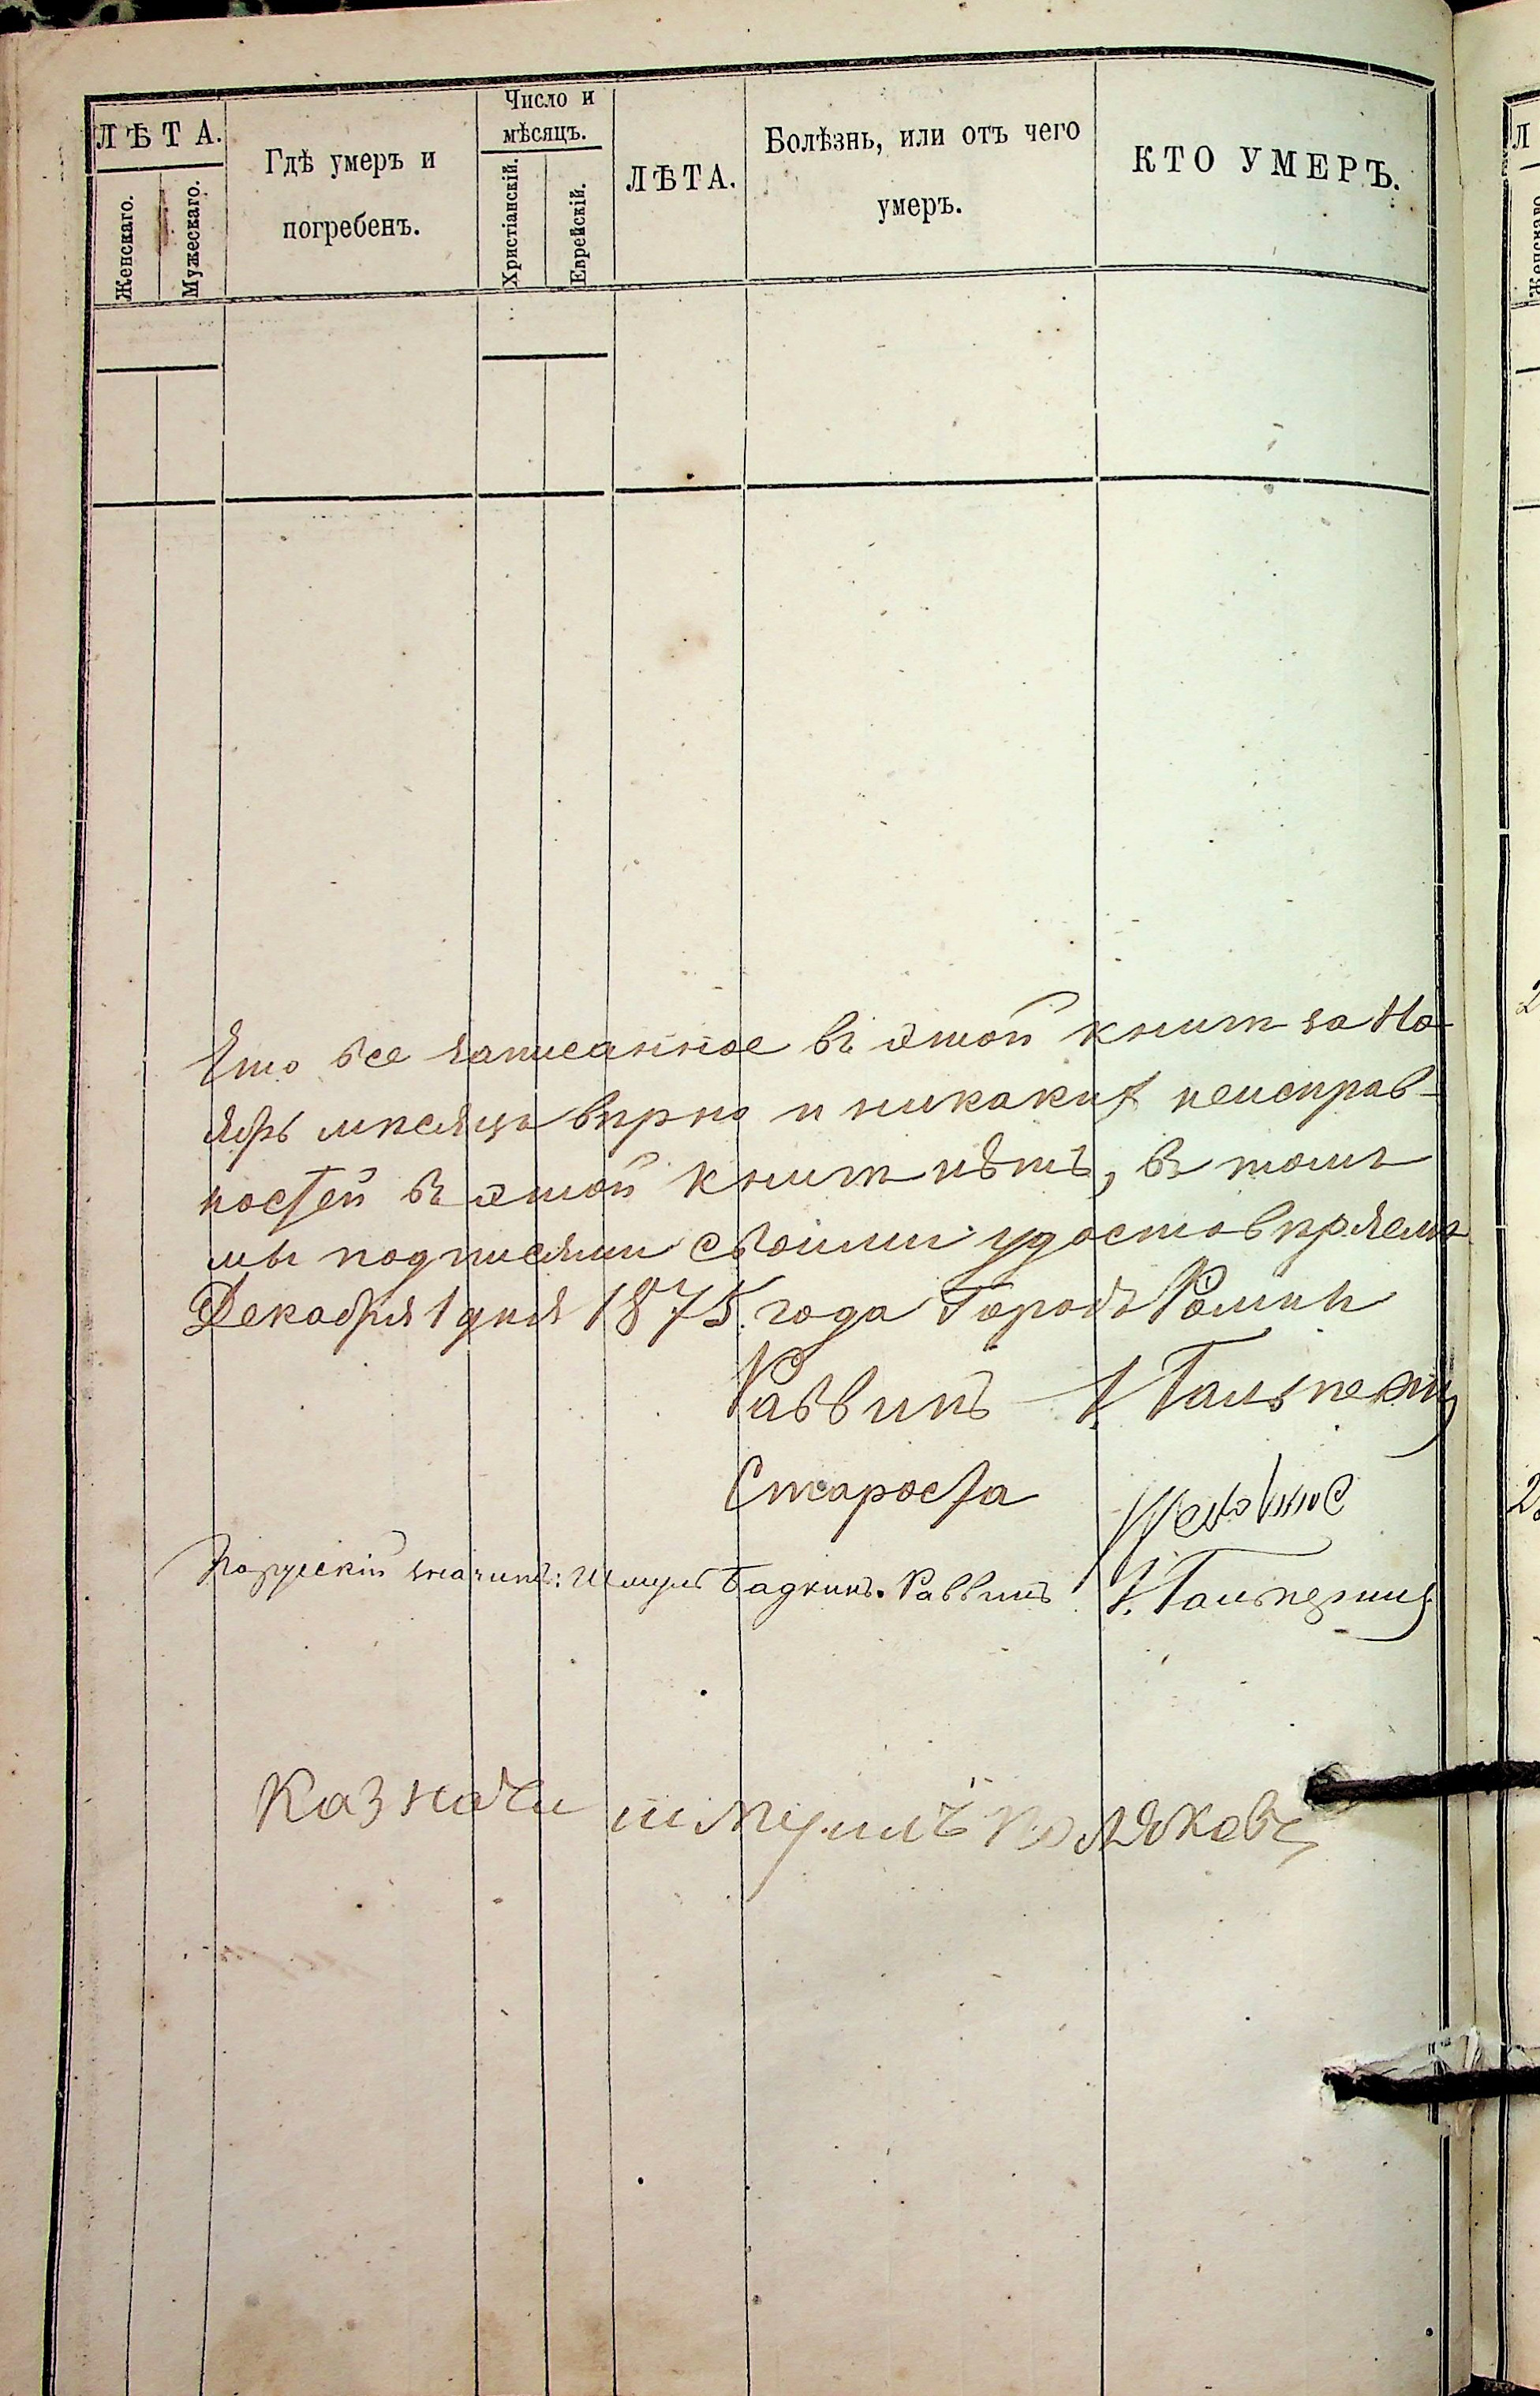 ЛѢТА.
Женскаго.
Мужескаго.
Гдѣ умеръ и
погребенъ.
Число и
мѣсяцъ.
Христіанскій.
Еврейскій.
ЛѢТА.
Болѣзнь, или отъ чего
умеръ.
КТО УМЕРЪ.
Что все записанное въ этой книгѣ за Но-
ябрь мѣсяцъ вѣрно и никаких неисправ-
ностей въ этой книгѣ нѣтъ, въ томъ
мы подписями своими удостовѣряемъ
Декабря 1 дня 1875. года Городъ Ромны
Раввинъ Гальперинъ
Староста
по русскій значитъ: Шмуль Бадкинъ. Раввинъ Гальперинъ
Казначи шмуилъ Поляковъ